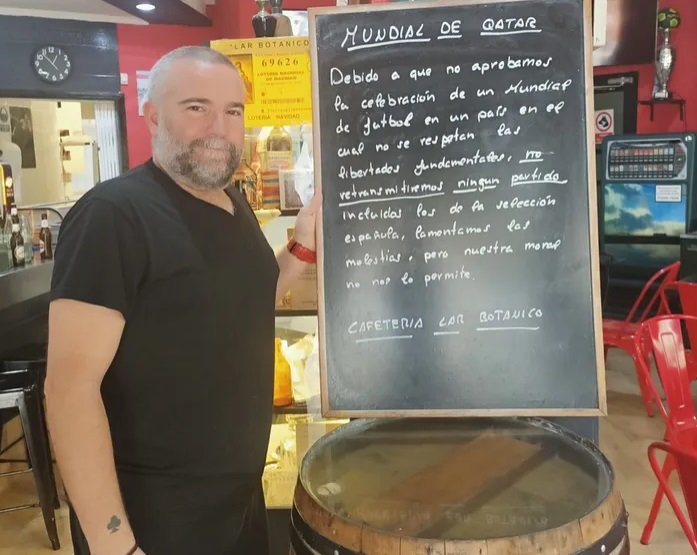 "LAR BOTANICO"
69626
LOTERIA NACIONAL
DE NAVIDAD
LOTERIA NAVIDAD
MUNDIAL DE QATAR
Debido a que no aprobamos
la celebración de un Mundial
de futbol en un país en el
cual no se respetan las
libertades fundamentales, no
retransmitiremos ningun partido
incluidos los de la selección
española, lamentamos las
molestias, pero nuestra moral
no nos lo permite.
CAFETERIA LAR BOTANICO